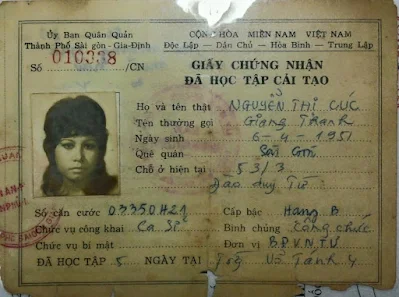 Ủy Ban Quân Quản
Thành Phố Sài gòn - Gia-Định
Số 010338 /CN
CỘNG HÒA MIỀN NAM VIỆT NAM
Độc Lập - Dân Chủ - Hòa Bình - Trung Lập
GIẤY CHỨNG NHẬN
ĐÃ HỌC TẬP CẢI TẠO
Họ và tên thật NGUYỄN THỊ CÚC
Tên thường gọi Giang Thanh
Ngày sinh 6-4-1951
Quê quán Sài Gòn
Chỗ ở hiện tại 53/3
Đào Duy Từ
Số căn cước 03350421 Cấp bậc Hạng B
Chức vụ công khai Ca sĩ Binh chủng Công chức
Chức vụ bí mật Đơn vị B.P.V.N.T.V
ĐÃ HỌC TẬP 5 NGÀY TẠI Võ Tánh